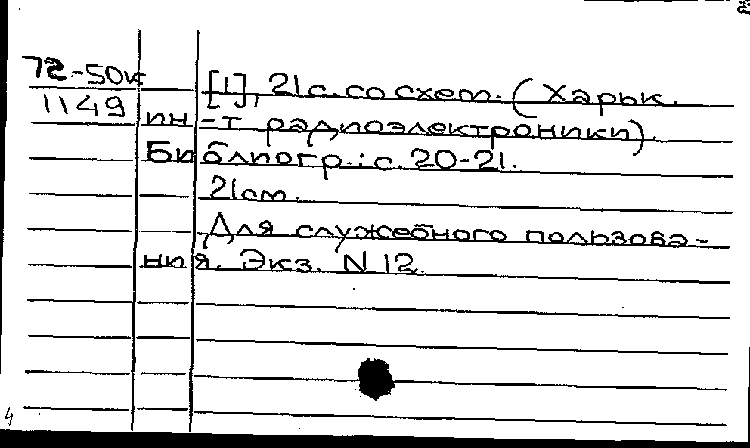 72-50к
1149
[1], 21с. со схем. (Харьк.
ин-т радиоэлектроники).
Библиогр.: с. 20-21.
21см.
Для служебного пользова-
ния. Экз. N 12.
4